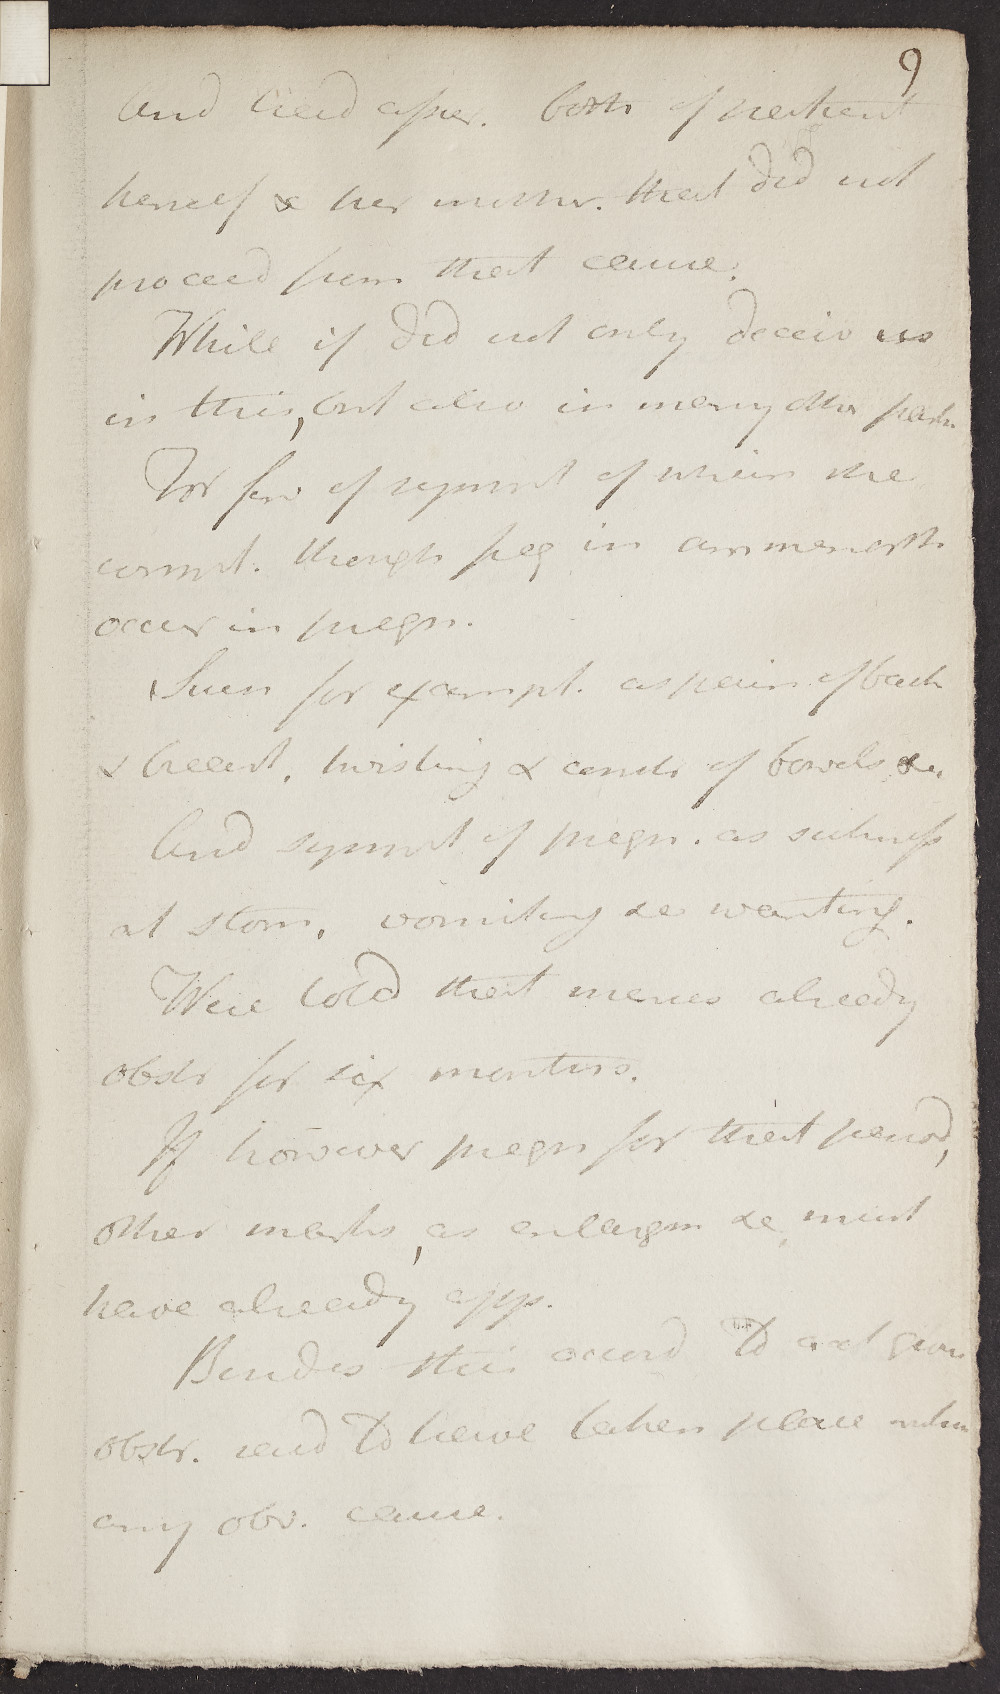 9
And had asser. both of patient
herself & her mother. that did not
proceed from that cause.
While it did not only deceiv us
in this, but also in many other part.
For few of sympt of which she
compt. though freq in amenorrh
occur in pregn.
Such for exampl. as pain of back
& breast, twisting & const. of bowels &c.
And sympt of pregn. as sickness
at stom, vomiting &c wanting.
Were told that menses already
obstr for six months.
If however pregn for that period,
other marks, as enlargm &c, must
have already app.
Besides this accord to acct given
obstr. said to have taken place
any obv. cause.